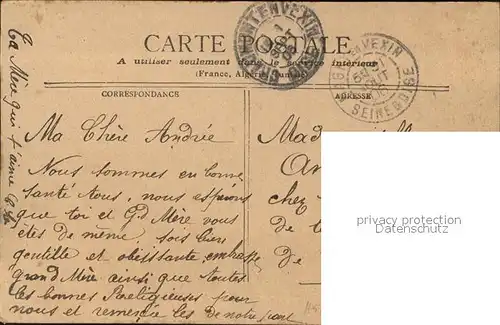 CARTE POSTALE
A utiliser seulement dans le service intérieur
(France, Algérie, Tunisie)
CORRESPONDANCE
ADRESSE
Ma Chère Andrée
Nous sommes en bonne
santé tous, nous espérons
que toi et Gd Mère vous
etes de même sois bien
gentille et obeissante embrasse
grand Mère ainsi que toutes
les bonnes Religieuses pour
nous et remercie les de notre part
ta Mère qui t'aime
Mad
An
chez
de
de
SEINE & OISE
privacy protection
Datenschutz